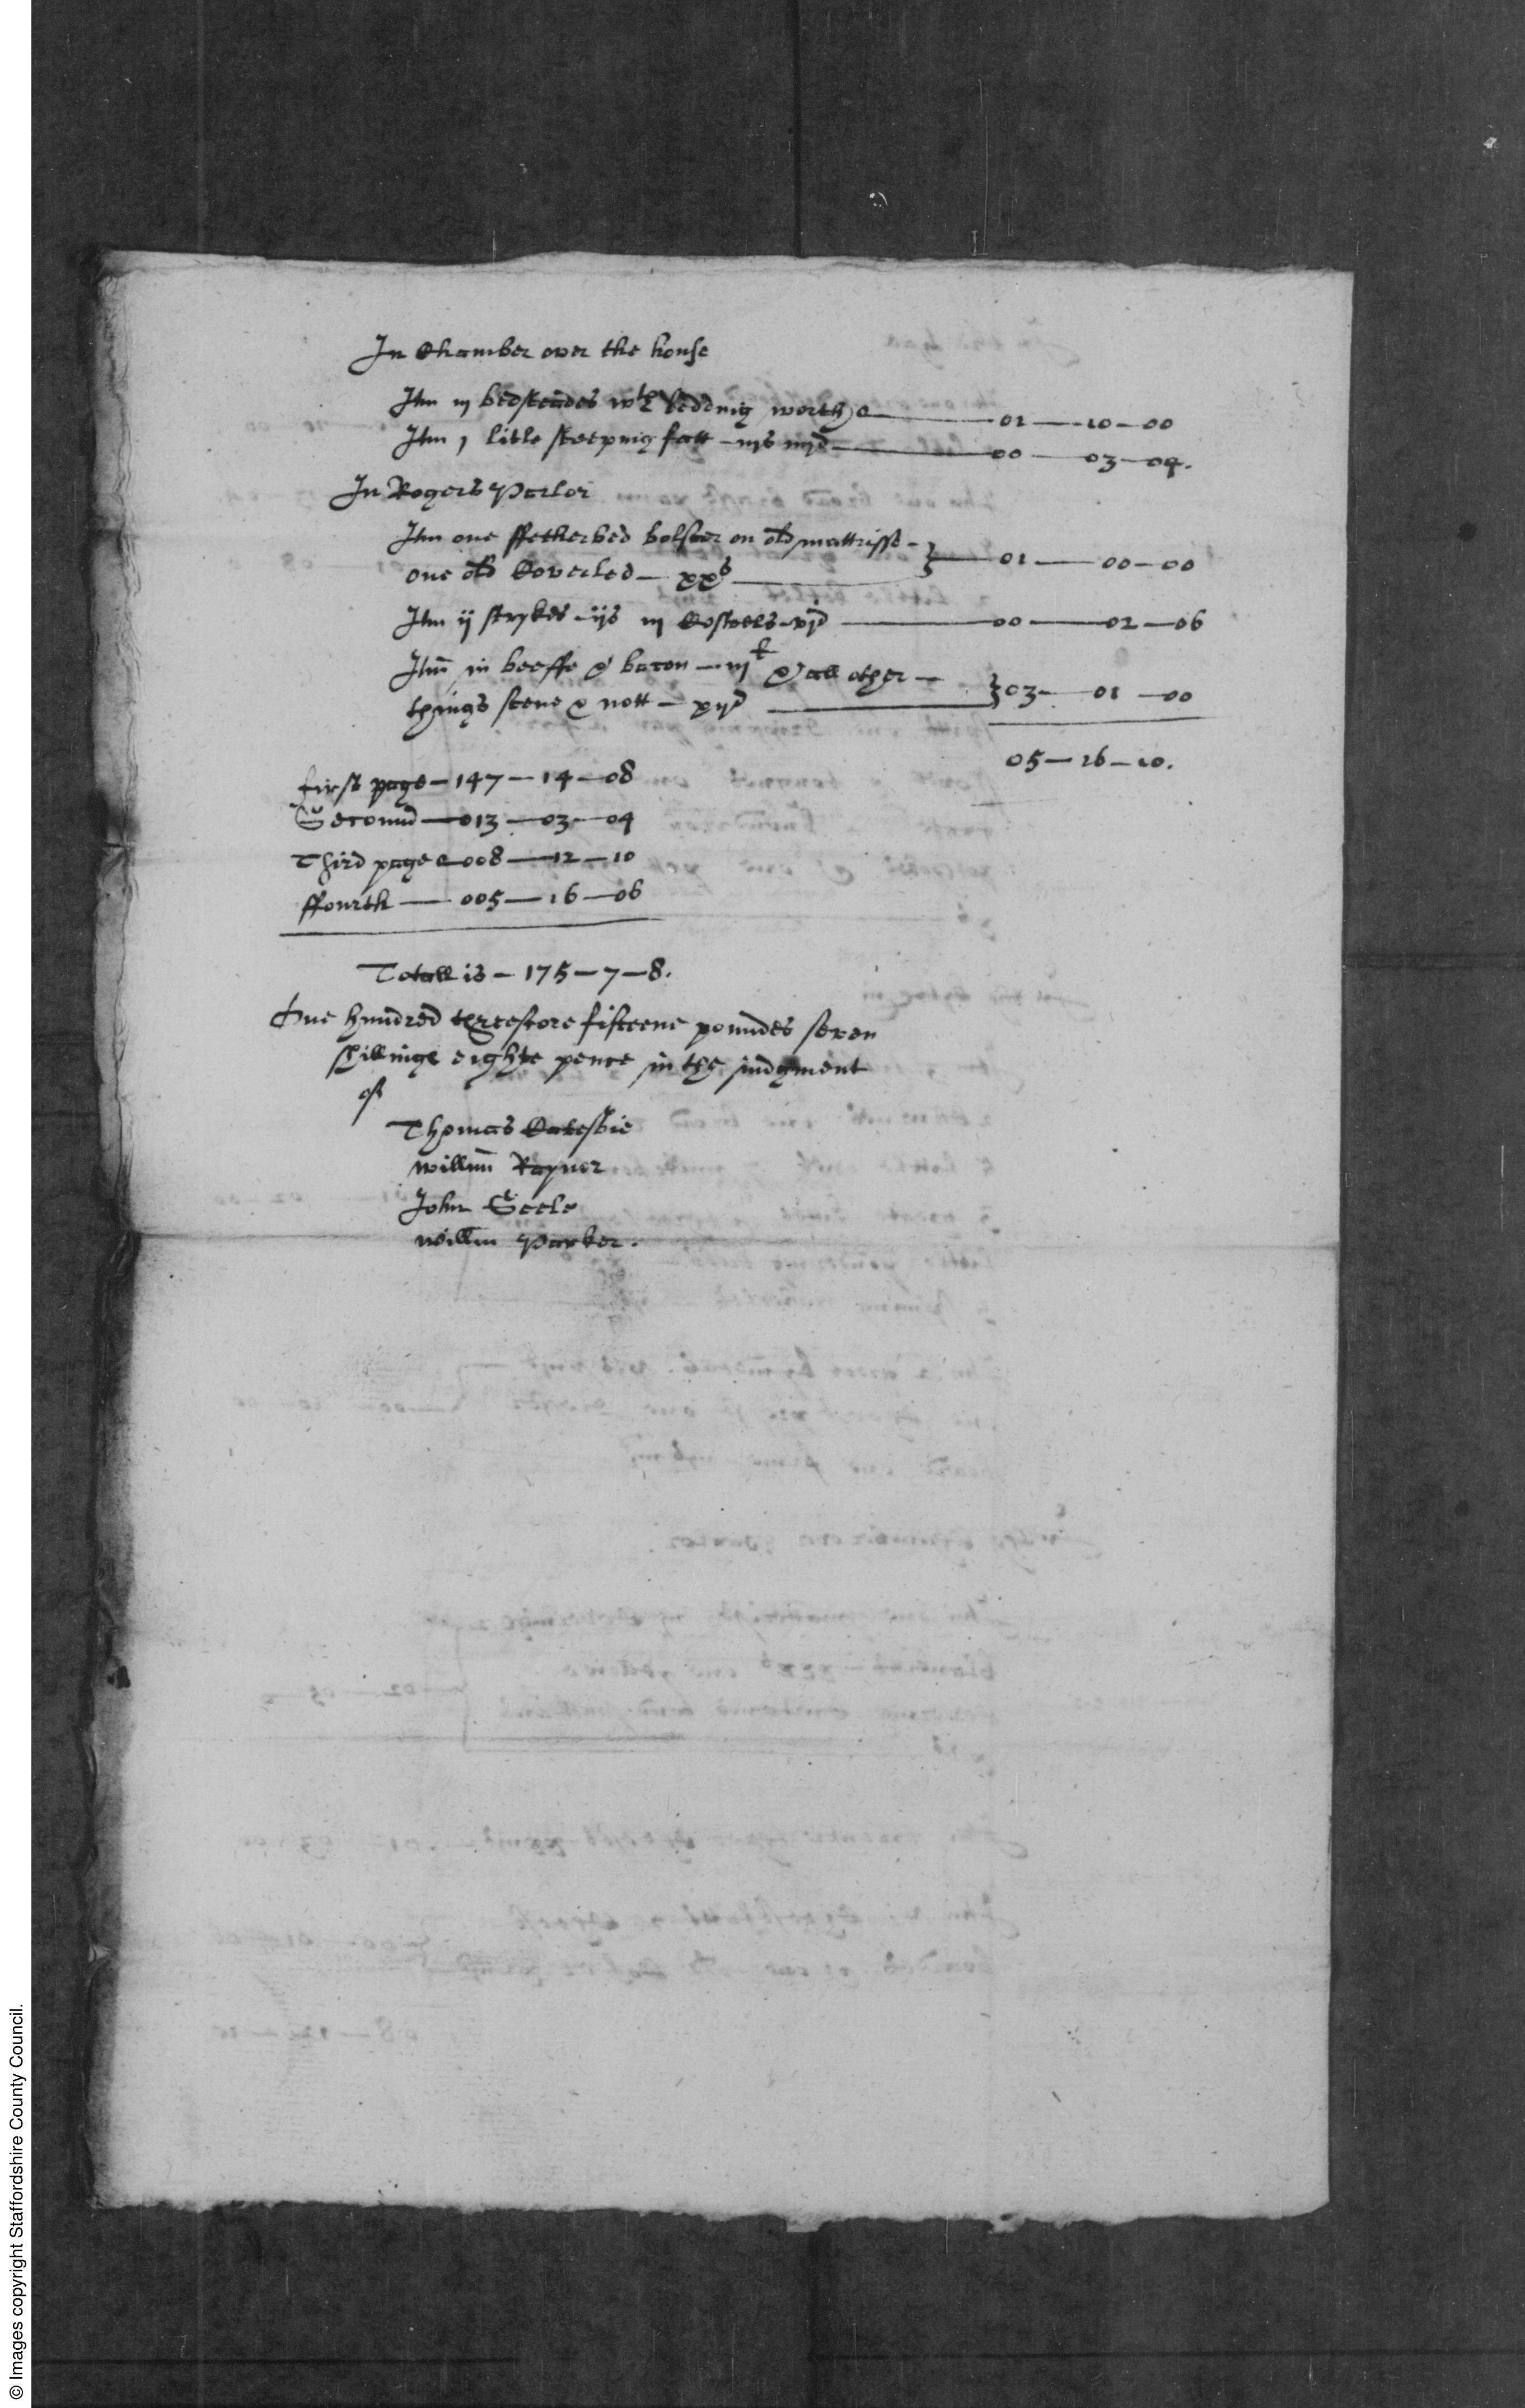 In Chamber over the house
Itm iij bedsteades wth beddinig worth 01—10—00
Itm j litle steepinig fatt – iijs iiijd 00—03—04.
In Rogers Parlor
Itm one ffetherbed bolster on old mattrisse –
one old Coverled – xxs } 01—00—00
Itm ij strykes – ijs iij vjd 00—02—06
Itm in beeffe & bacon – iijl & all other –
things seene & nott – xijd } 03—01—00
05—16—10.
first page – 147 – 14 – 08
Second – 013 – 03 – 04
Third page – 008 – 12 – 10
ffourth – 005 – 16 – 06
Totall is – 175 – 7 – 8.
One hundred threescore fifteene poundes seven
shillings eighte pence in the judgment
of
Thomas Catesbie
Willm Rayner
John Steele
Willm Parker.
© Images copyright Staffordshire County Council.